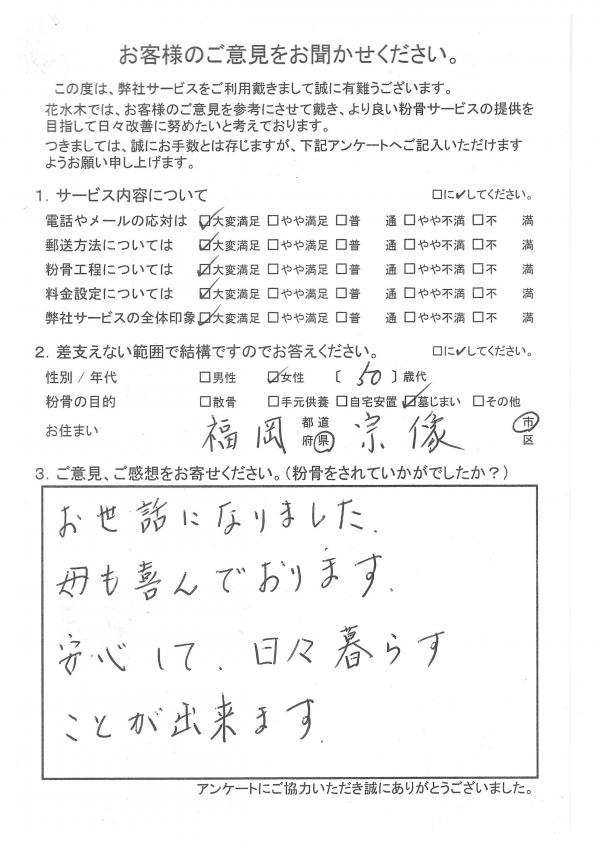 お客様のご意見をお聞かせください。
この度は、弊社サービスをご利用戴きまして誠に有難うございます。
花水木では、お客様のご意見を参考にさせて戴き、より良い粉骨サービスの提供を
目指して日々改善に努めたいと考えております。
つきましては、誠にお手数とは存じますが、下記アンケートへご記入いただけます
ようお願い申し上げます。
1. サービス内容について □に✔してください。
電話やメールの応対は ☑大変満足 □やや満足 □普 通 □やや不満 □不 満
郵送方法については ☑大変満足 □やや満足 □普 通 □やや不満 □不 満
粉骨工程については ☑大変満足 □やや満足 □普 通 □やや不満 □不 満
料金設定については ☑大変満足 □やや満足 □普 通 □やや不満 □不 満
弊社サービスの全体印象 ☑大変満足 □やや満足 □普 通 □やや不満 □不 満
2. 差支えない範囲で結構ですのでお答えください。 □に✔してください。
性別/年代 □男性 ☑女性 〔 50 〕歳代
粉骨の目的 □散骨 □手元供養 □自宅安置 ☑墓じまい □その他
お住まい 福岡 都道府県 宗像 市区
3. ご意見、ご感想をお寄せください。(粉骨をされていかがでしたか?)
お世話になりました.
母も喜んでおります.
安心して、日々暮らす
ことが出来ます.
アンケートにご協力いただき誠にありがとうございました。